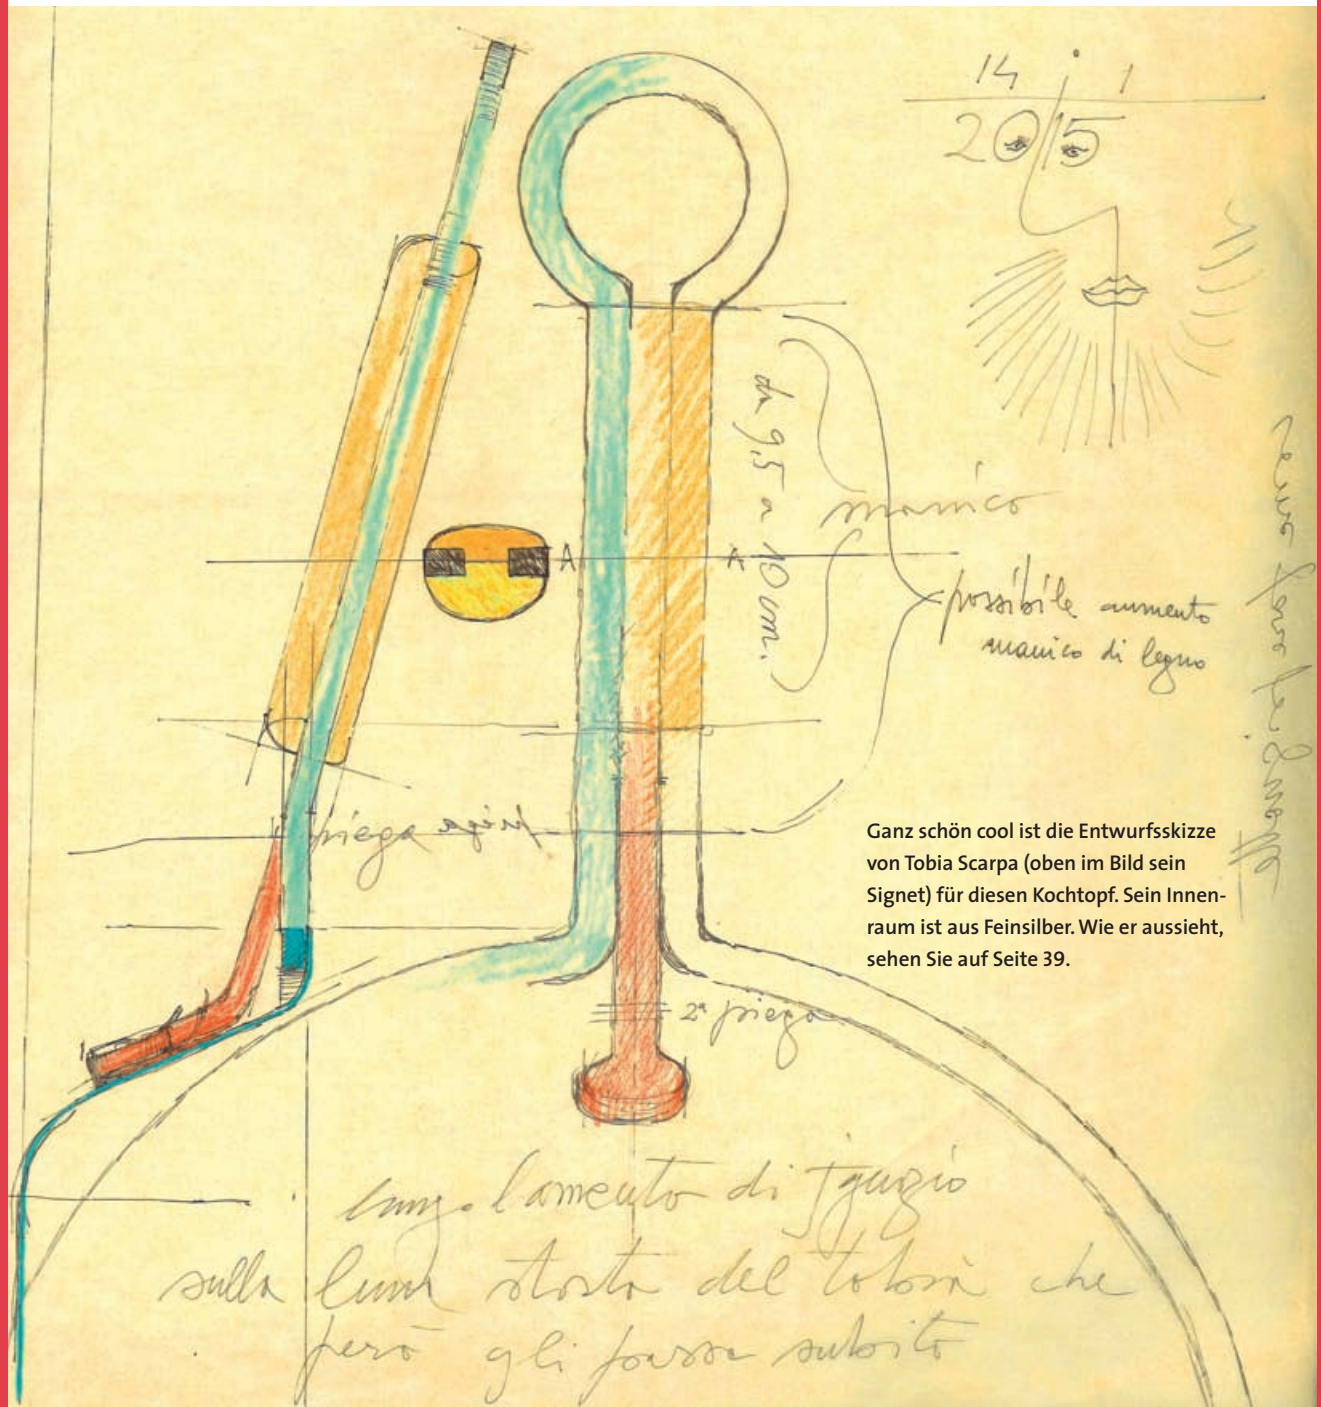 14 1
2015
da 9,5 a 10 cm.
manico
A A
possibile aumento
manico di legno
piega piega
Ganz schön cool ist die Entwurfsskizze
von Tobia Scarpa (oben im Bild sein
Signet) für diesen Kochtopf. Sein Innen-
raum ist aus Feinsilber. Wie er aussieht,
sehen Sie auf Seite 39.
2ª piega
lamento di
sulla storta del tobia che
però gli passa subito